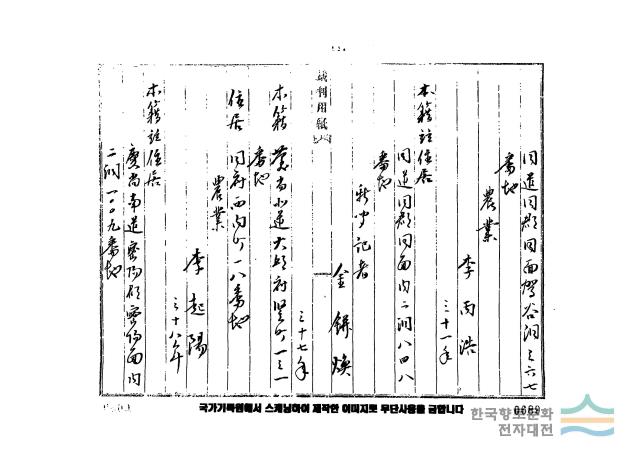 同道同郡同面駕谷洞三六七
番地
農業
李雨浩
三十一年
本籍並住居
同道同郡同面内二洞八四八
番地
新聞記者
金餠煥
三十七年
裁判用紙
本籍 慶尚北道大邱府堅町一三一
番地
住居 同府西内町一八番地
農業
李起陽
三十八年
本籍並住居
慶尚南道密陽郡密陽面内
二洞一〇〇九番地
국가기록원에서 스캐닝하여 제작한 이미지로 무단사용을 금합니다
0009
한국향토문화
전자대전